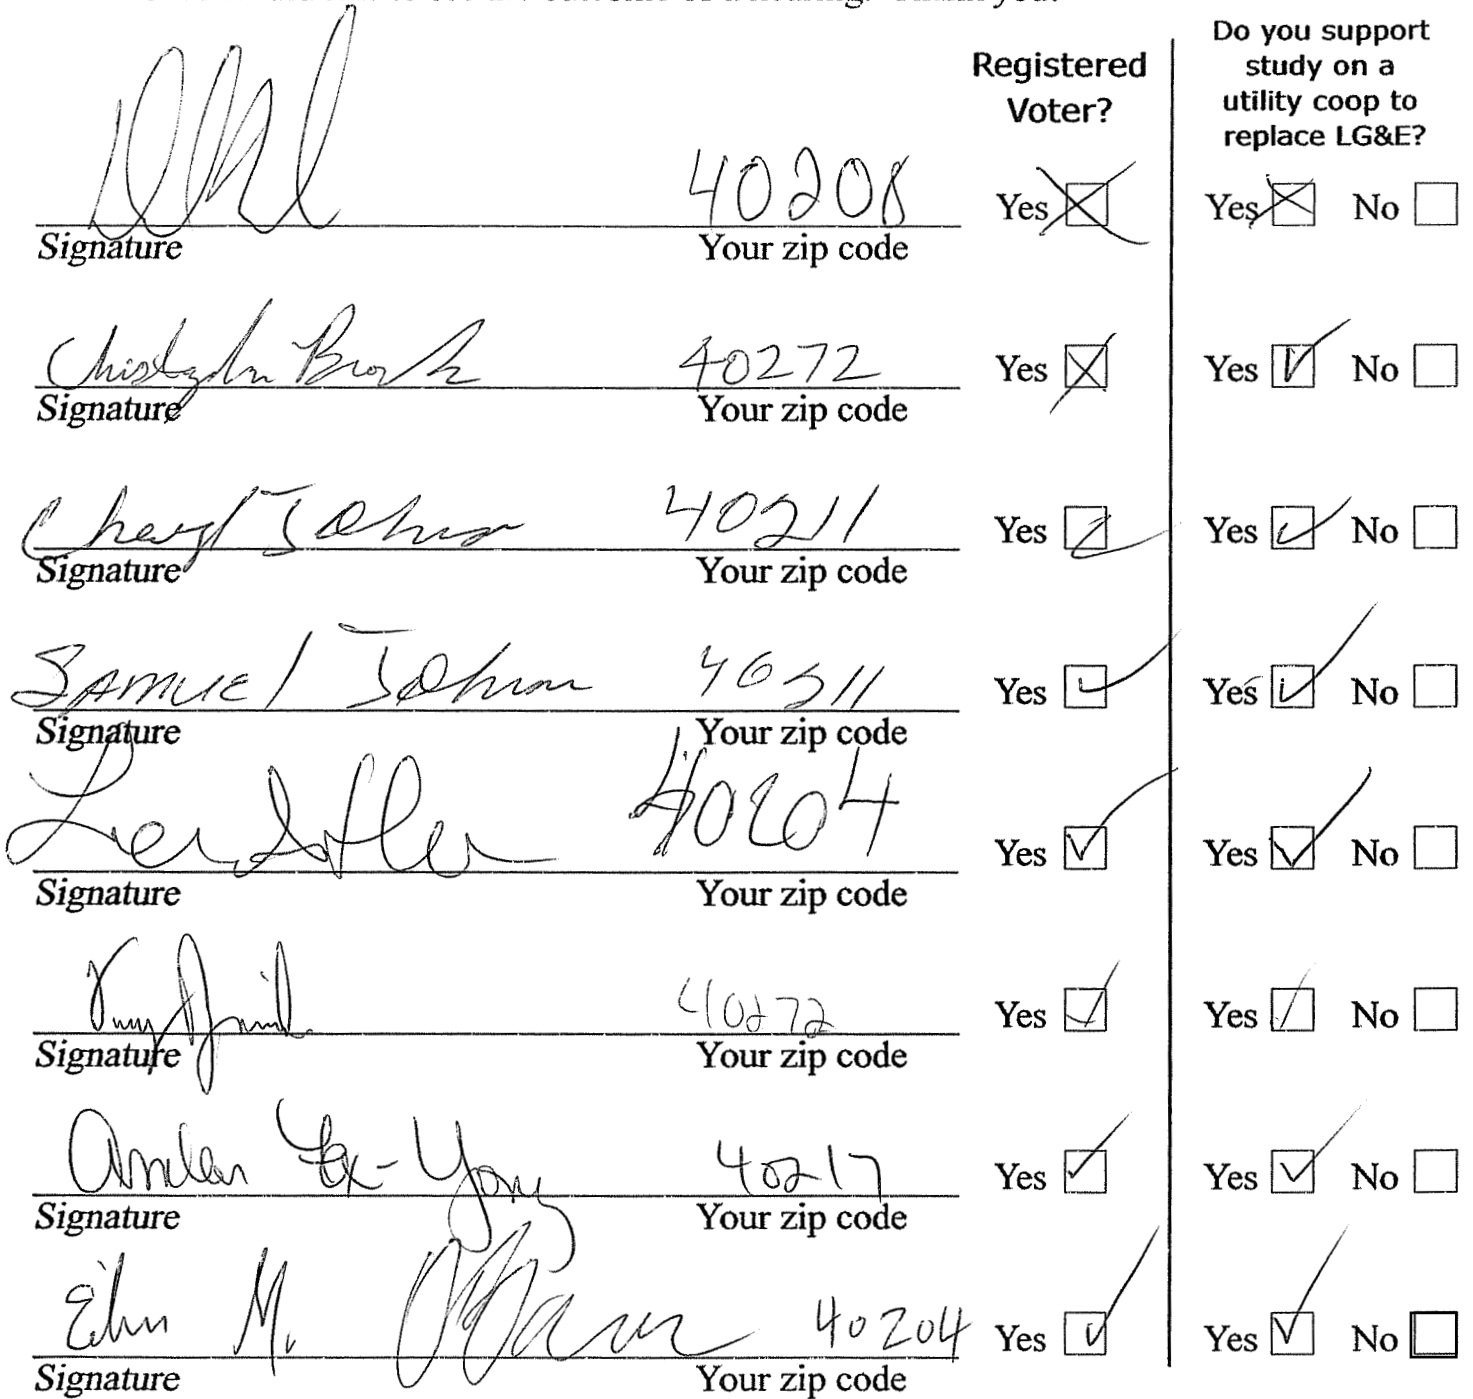 Registered Voter?
Do you support study on a utility coop to replace LG&E?
40208 Yes Yes No
Signature Your zip code
40272 Yes Yes No
Signature Your zip code
Cheryl Johnson 40211 Yes Yes No
Signature Your zip code
SAMUEL Johnson 40211 Yes Yes No
Signature Your zip code
40204 Yes Yes No
Signature Your zip code
40272 Yes Yes No
Signature Your zip code
40217 Yes Yes No
Signature Your zip code
M. 40204 Yes Yes No
Signature Your zip code